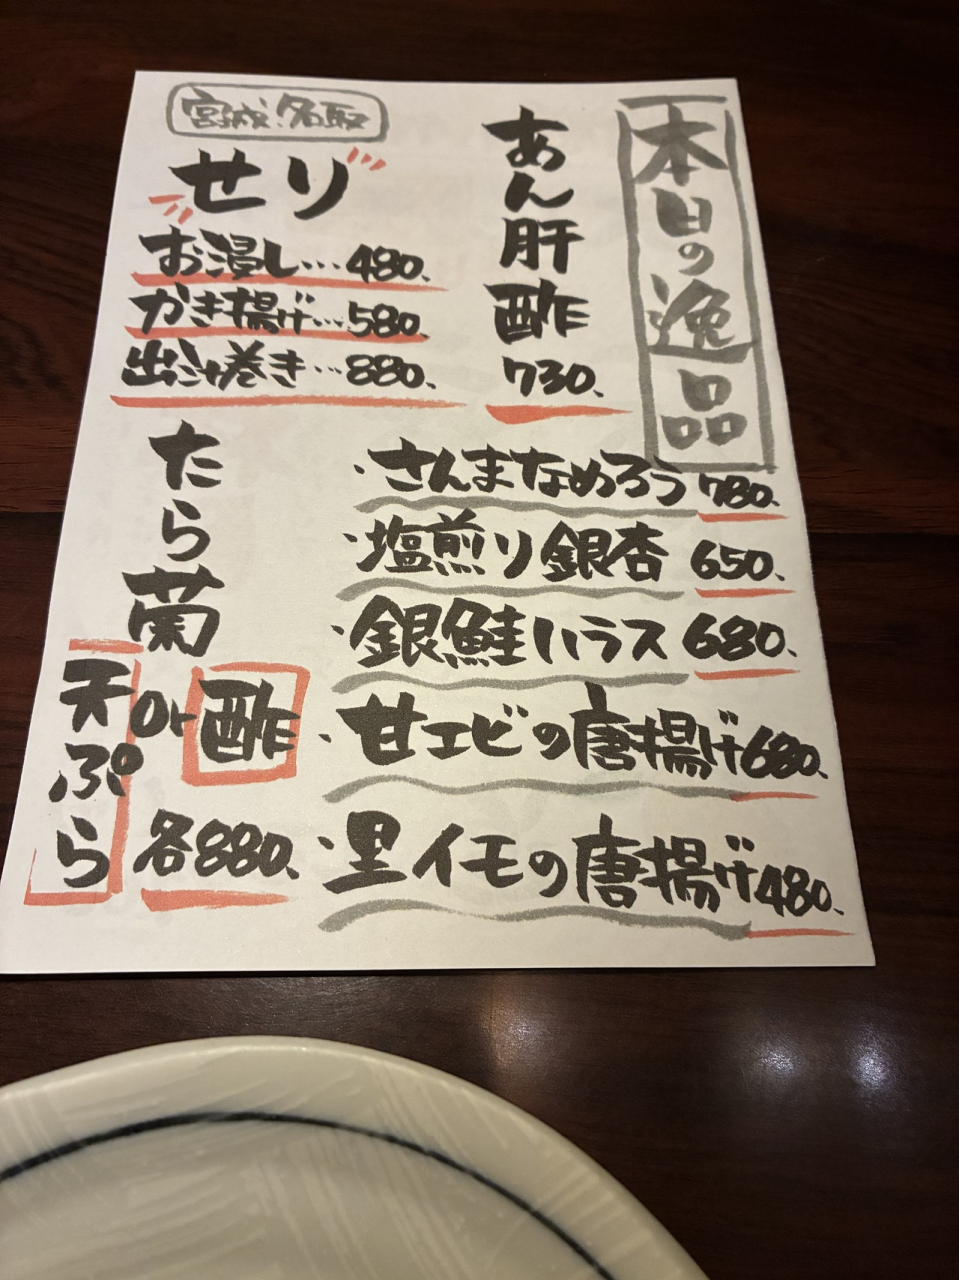 本日の逸品
あん肝酢
730、
宮城・名取
せり
お浸し…480、
かき揚げ…580、
出汁巻き…880、
たら菊
天ぷら or 酢
各880、
・さんまなめろう 780、
・塩煎り銀杏 650、
・銀鮭ハラス 680、
・甘エビの唐揚げ 680、
・里イモの唐揚げ 480、